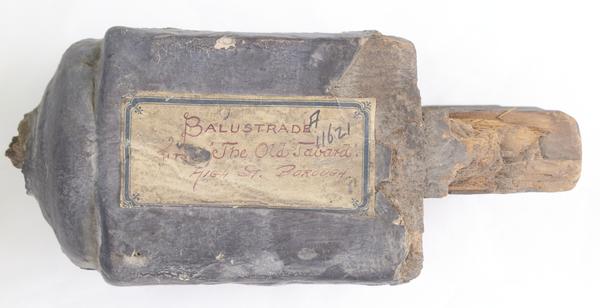 BALUSTRADE
A11621
from 'The Old Tabard'.
HIGH ST. BOROUGH.